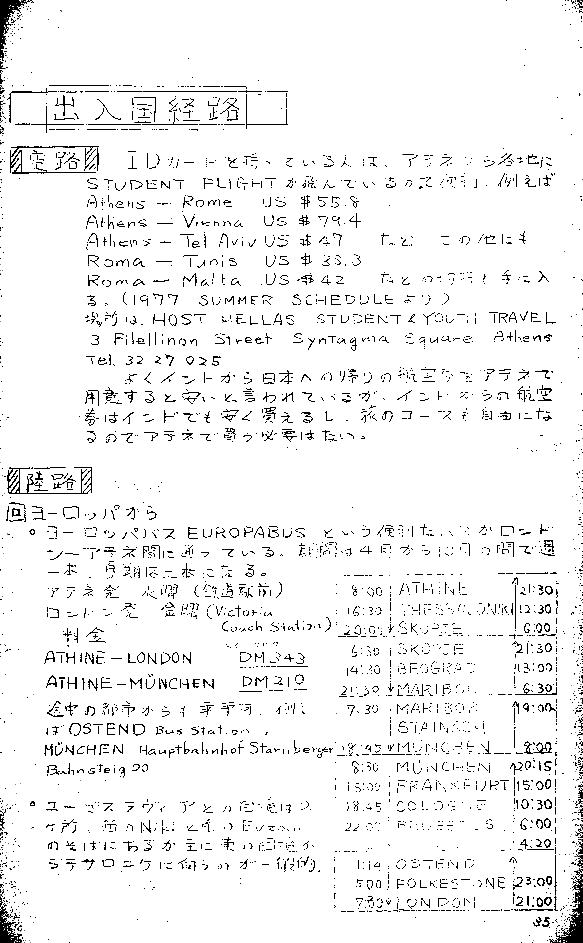 出入国経路
空路 IDカードを持っている人は、アテネから各地に
STUDENT FLIGHTが飛んでいるので便利、例えば
Athens — Rome US $55.8
Athens — Vienna US $79.4
Athens — Tel Aviv US $47 など この他にも
Roma — Tunis US $33.3
Roma — Malta US $42 などの 手に入
る。(1977 SUMMER SCHEDULEより)
場所は、HOST HELLAS STUDENT & YOUTH TRAVEL
3 Filellinon Street Syntagma Square Athens
Tel. 32 27 025
よくインドから日本への帰りの航空券をアテネで
用意すると安いと言われているが、インドからの航空
券はインドでも安く買えるし、旅のコースも自由にな
るのでアテネで買う必要はない。
陸路
回 ヨーロッパから
○ ヨーロッパバス EUROPABUS という便利なバスがロンド
ン—アテネ間に通っている。 は4月から10月の間で週
一本、 になる。
アテネ発 火曜 (鉄道駅前)
ロンドン発 金曜 (Victoria
Coach Station)
料金
ATHINE—LONDON DM 343
ATHINE—MÜNCHEN DM 310
途中の都市からも乗車可、例え
ば OSTEND Bus Station,
MÜNCHEN Hauptbahnhof Starnberger
Bahnsteig
○ ユーゴスラヴィアとの国境は2
ヶ所、西のNikiと東のEvzoni
のそばにあるが主に東の国境か
らテサロニケに向うのが一般的。
8:00 ATHINE 21:30
16:30 THESSALONIKI 12:30
20:00 SKOPJE 6:00
6:30 SKOPJE 21:30
14:30 BEOGRAD 13:00
21:30 MARIBOR 6:30
7:30 MARIBOR 19:00
STAINACH
18:45 MÜNCHEN 8:00
8:30 MÜNCHEN 20:15
15:00 FRANKFURT 15:00
18:45 COLOGNE 10:30
22:00 6:00
4:20
1:14 OSTEND
5:00 FOLKESTONE 23:00
7:30 LONDON 21:00
35